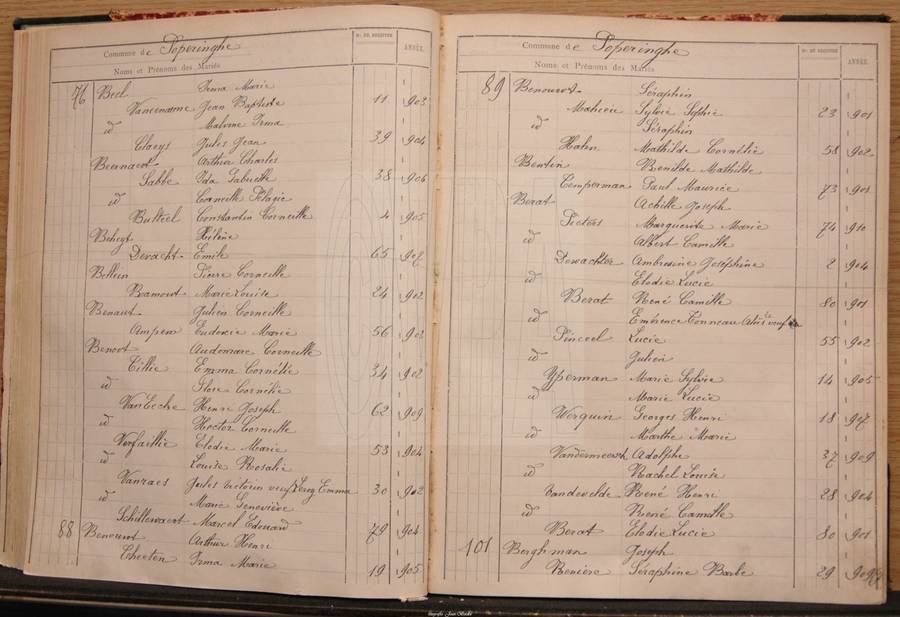 Commune de Poperinghe
Noms et Prénoms des Mariés
Nº DU REGISTRE
ANNÉE
76 Beel Irma Marie
Vancenanme Jean Baptiste 11 903
id Malvine Irma
Claeys Jules Jean 39 904
Beernaert Arthur Charles
Sabbe Ida Gabrielle 38 906
id Corneille Pélagie
Bulteel Constantin Corneille 4 905
Beheyt Hélène
Devacht Emile 65
Bellein Pierre Corneille
Bramont Marie Louise 24 902
Benaut Julien Corneille
Ampen Eudoxie Marie 56 902
Benoot Audomare Corneille
Tillie Emma Cornélie 34 902
id Cornélie
VanEecke Henri Joseph 62 909
id Hector Corneille
Verfaillie Elodie Marie 53 904
id Louise Rosalie
Vanraes Jules Victoin veuf Leroy Emma 30 902
id Marie Geneviève
Schillewaert Marcel Edouard 79 904
88 Benount Arthur Henri
Cheeten Irma Marie 19 905
Commune de Poperinghe
Noms et Prénoms des Mariés
Nº DU REGISTRE
ANNÉE
89 Benouwt Séraphin
Mahieu Sylvie Sophie 23 901
id Séraphin
Hahn Mathilde Cornélie 58 902
Bentin Benilde Mathilde
Temperman Paul Maurice 73 901
Berat Achille Joseph
Pieters Marguerite Marie 74 910
id Albert Camille
Dewachter Ambrosine Joséphine 2 904
id Elodie Lucie
Berat René Camille 80 901
id Emérence
Pinceel Lucie 55 902
id Julien
Yperman Marie Sylvie 14 905
id Marie Lucie
Werquin Georges Henri 18 907
id Marthe Marie
Vandermeersch Adolphe 37 909
id Rachel Louise
Vandevelde René Henri 28 904
id René Camille
Berat Elodie Lucie 80 901
101 Berghman Joseph
Reniere Séraphine Barbe 29 909